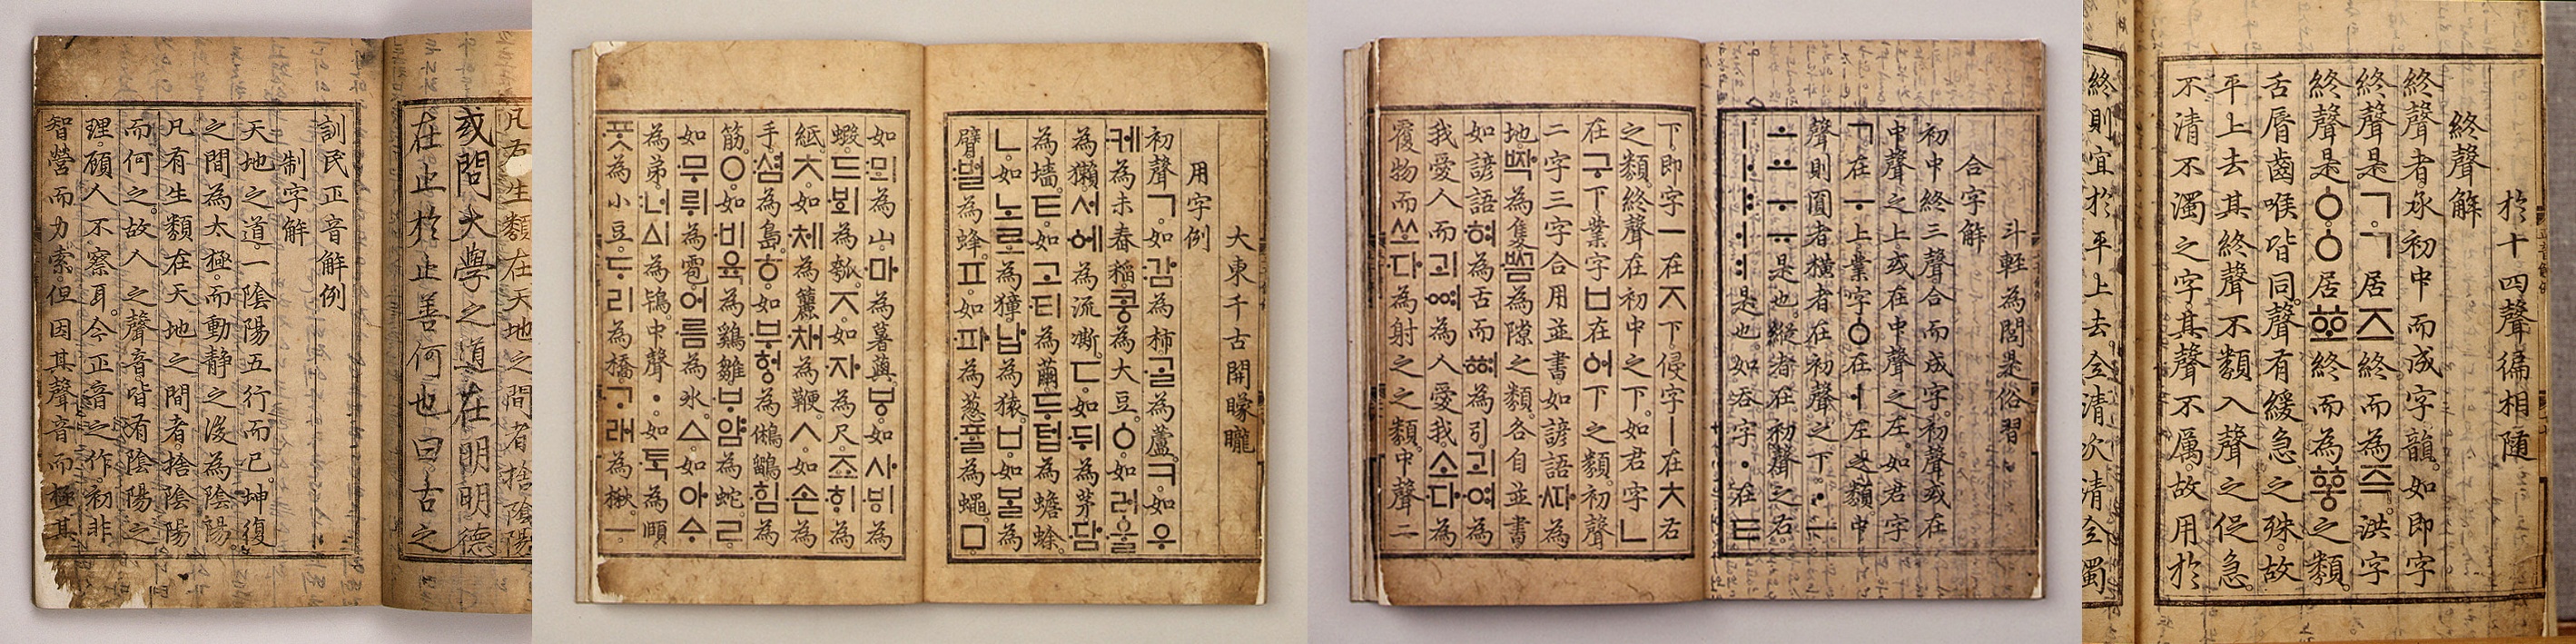 凡有生類在天地之間者捨陰陽
或問大學之道在明明德
在止於止善何也曰古之
訓民正音解例
制字解
天地之道一陰陽五行而已坤復
之間為太極而動靜之後為陰陽
凡有生類在天地之間者捨陰陽
而何之故人之聲音皆有陰陽之
理顧人不察耳今正音之作初非
智營而力索但因其聲音而極其
大東千古開矇矓
用字例
初聲ㄱ如감為柿ᄀᆞᆯ為蘆ㅋ如우
케為未舂稻콩為大豆ㆁ如러울
為獺서에為流凘ㄷ如뒤為茅담
為墻ㅌ如고티為繭두텁為蟾蜍
ㄴ如노로為獐납為猿ㅂ如ᄇᆞᆯ為
臂벌為蜂ㅍ如파為葱ᄑᆞᆯ為蠅ㅁ
如뫼為山마為薯藇ㅸ如사ᄫᅵ為
蝦드ᄫᅴ為瓠ㅈ如자為尺죠ᄒᆡ為
紙ㅊ如체為籭채為鞭ㅅ如손為
手셤為島ㅎ如부헝為鵂鶹힘為
筋ㅇ如비육為鷄雛ᄇᆞ얌為蛇ㄹ
如무뤼為雹어름為氷ㅿ如아ᅀᆞ
為弟너ᅀᅵ為鴇中聲ㆍ如ᄐᆞᆨ為頤
ᄑᆞᆺ為小豆ᄃᆞ리為橋ᄀᆞ래為楸ㅡ
斗輕為閭是俗習
合字解
初中終三聲合而成字初聲或在
中聲之上或在中聲之左如君字
ㄱ在ㅜ上業字ㆁ在ㅓ左之類中
聲則圓者橫者在初聲之下ㆍㅡ
ㅗㅛㅜㅠ是也縱者在初聲之右
ㅣㅏㅑㅓㅕ是也如呑字ㆍ在ㅌ
下即字ㅡ在ㅈ下侵字ㅣ在ㅊ右
之類終聲在初中之下如君字ㄴ
在구下業字ㅂ在ᅌᅥ下之類初聲
二字三字合用並書如諺語ᄯᅡ為
地ᄧᅡᆨ為隻ᄢᅳᆷ為隙之類各自並書
如諺語혀為舌而ᅘᅧ為引괴여為
我愛人而괴ᅇᅧ為人愛我소다為
覆物而쏘다為射之之類中聲二
於十四聲徧相随
終聲解
終聲者承初中而成字韻如即字
終聲是ㄱㄱ居즈終而為즉洪字
終聲是ㆁㆁ居ᅘᅩ終而為ᅘᅩᇰ之類
舌脣齒喉皆同聲有緩急之殊故
平上去其終聲不類入聲之促急
不清不濁之字其聲不厲故用於
終則宜於平上去全清次清全濁